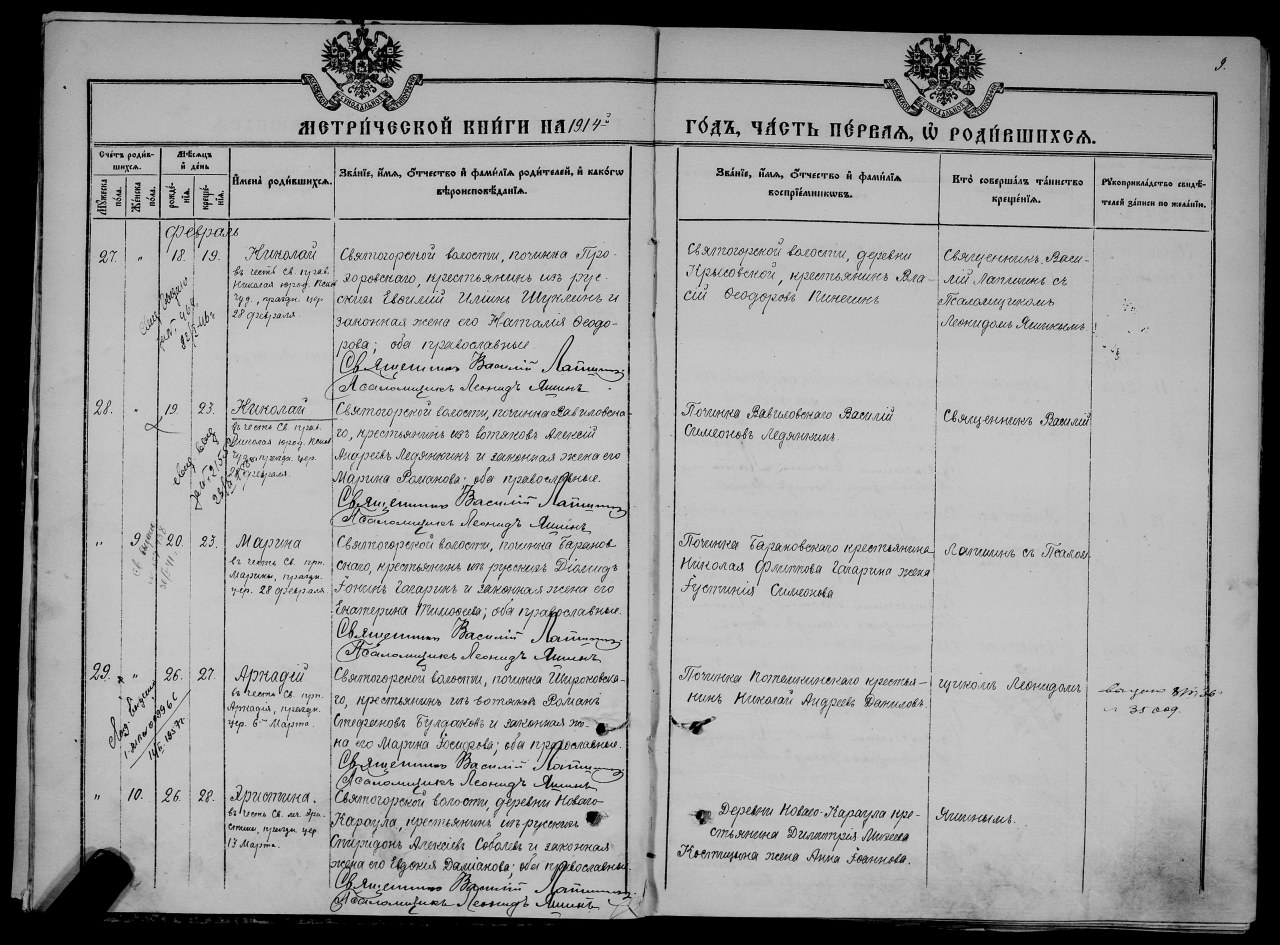 9.
МЕТРИ́ЧЕСКОЙ КНИ́ГИ НА 1914й
ГО́ДЪ, ЧА́СТЬ ПЕ́РВАЯ, Ѿ РОДИ́ВШИХСЯ.
Сче́тъ роди́в-
шихся.
Мꙋ́жеска по́ла.
Же́нска по́ла.
Мѣ́сяцъ
и҆ де́нь
рожде́-
нїя.
креще́-
нїя.
И҆мена̀ роди́вшихся.
Зва́нїе, и҆́мя, ѻ҆́тчество и҆ фами́лїя роди́телей, и҆ како́гѡ
вѣроисповѣ́данїя.
Зва́нїе, и҆́мя, ѻ҆́тчество и҆ фами́лїя
воспрїе́мниковъ.
Кто̀ соверша́лъ та́инство
креще́нїя.
Рꙋкоприкла́дство свидѣ́-
телей за́писи по жела́нїю.
Февраль
27. " 18. 19. Николай
въ честь Св. прав.
Николая юрод. Пск.
Чуд., праздн. цер.
28 февраля.
Святогорской волости, починка Про-
хоровскаго, крестьянинъ изъ рус-
скихъ Евѳимій Илiинъ Шуклинъ и
законная жена его Наталія Ѳеодо-
рова; оба православные.
Священникъ Василій Лапшинъ
Псаломщикъ Леонидъ Яшинъ
Святогорской волости, деревни
Крысовской, крестьянинъ Вла-
сій Ѳеодоровъ Кинешинъ
Священникъ Васи-
лій Лапшинъ съ
Псаломщикомъ
Леонидомъ Яшинымъ
28. " 19 23. Николай
въ честь Св. прав.
Николая юрод. Пск.
Чуд. праздн. цер.
28 февраля.
Святогорской волости, починка Вавиловска-
го, крестьянинъ изъ вотяковъ Алексій
Андреевъ Ледянкинъ и законная жена его
Марина Романова; оба православные.
Священникъ Василій Лапшинъ
Псаломщикъ Леонидъ Яшинъ
Починка Вавиловскаго Василій
Симеоновъ Ледянкинъ.
Священникъ Василій
" 9. 20. 23. Марина
въ честь Св. прп.
Марины, праздн.
цер. 28 февраля
Святогорской волости, починка Баранов
скаго, крестьянинъ изъ русскихъ Діомидъ
Іонинъ Гагаринъ и законная жена его
Екатерина Тимоѳеева; оба православные.
Священникъ Василій Лапшинъ
Псаломщикъ Леонидъ Яшинъ
Починка Барановскаго крестьянина
Николая Филиппова Гагарина жена
Іустинія Симеонова
Лапшинъ съ Псалом
29. " 26. 27. Аркадій
въ честь Св. прп.
Аркадія, праздн.
цер. 6го Марта.
Святогорской волости, починка Широковска-
го, крестьянинъ изъ вотяковъ Романъ
Стефановъ Булдаковъ и законная же-
на его Марина Іосифова; оба православные.
Священникъ Василій Лапшинъ
Псаломщикъ Леонидъ Яшинъ
Починка Котомкинскаго кресть-
нинъ Николай Андреевъ Даниловъ.
щикомъ Леонидомъ
" 10. 26. 28. Христина.
въ честь Св. мч. Хри-
стины, праздн. цер.
13 Марта.
Святогорской волости, деревни Новаго-
Караула, крестьянинъ изъ русскихъ
Спиридонъ Алексіевъ Соболевъ и законная
жена его Евдокія Даміанова; оба православные.
Священникъ Василій Лапшинъ
Псаломщикъ Леонидъ Яшинъ
Деревни Новаго-Караула кре-
стьянина Димитрія Михеева
Костицына жена Анна Іоаннова.
Яшинымъ.